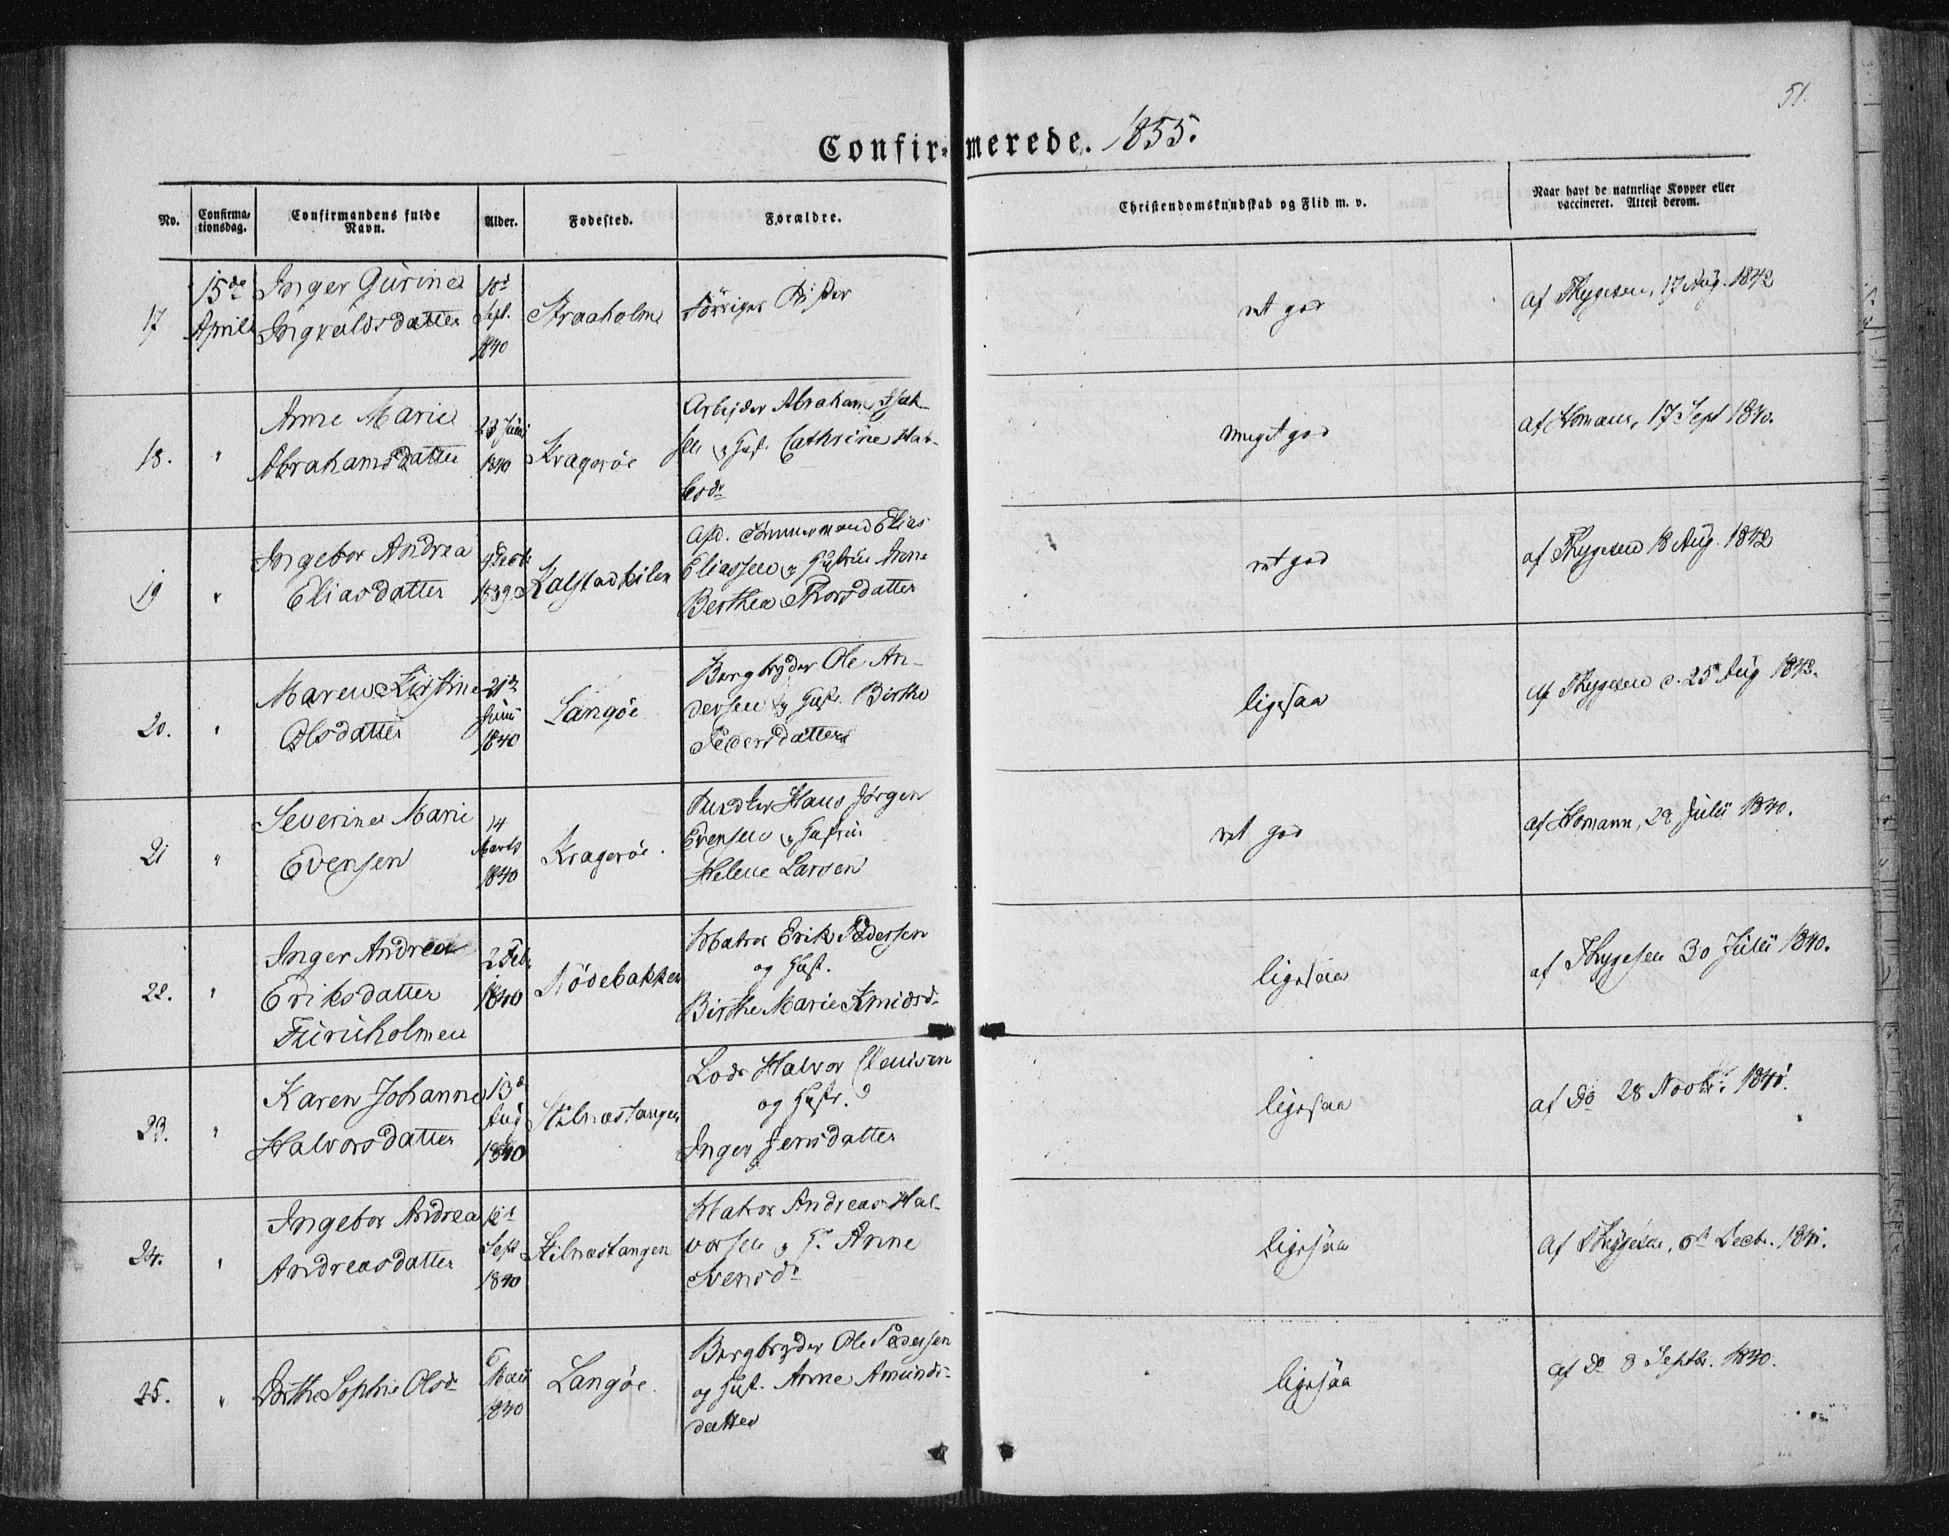 51.
Confirmerede. 1855.
No.
Confirma-
tionsdag.
Confirmandens fulde
Navn.
Alder.
Fødested.
Forældre.
Christendomskundskab og Flid m. v.
Naar havt de naturlige Kopper eller
vaccineret. Attest derom.
17
15de
April
Inger Gurine
Ingvaldsdatter
Sept.
1840
Straaholme
Forriges Søster
ret god
af Thygesen, 17 Aug. 1842
18.
"
Anne Marie
Abrahamsdatter
23 Juni
1840
Kragerøe
Arbejder Abraham Isak-
sen og Hust. Cathrine
ret
meget god
af Homann, 17 Sept 1840.
19
"
Ingebor Andrea
Eliasdatter
9 Decbr
1839
Kalstadkilen
afd. Tømmermand Elias
Eliassen og Hustrue Anne
Berthea Thorsdatter
ret god
af Thygesen 18 Aug. 1842
20.
"
Maren Kirstine
Olsdatter
21de
Juni
1840
Langøe
Bergbryder Ole An-
dersen og Hust. Birthe
Pedersdatter
ligesaa
af Thygesen d. 25 Aug 1842.
21
"
Severine Marie
Evensen
14
Marts
1840
Kragerøe.
Hans Jørgen
Evensen og Hustrue
Helene Larsen
ret god
af Homann, 28 Julii 1840.
22.
"
Inger Andrea
Eriksdatter
Furuholmen
2 Feb.
1840
Nødebakken
Matros Erik Pedersen
og Hust.
Birthe Marie
ligesaa
af Thygesen 30 Julii 1840.
23.
"
Karen Johanne
Halvorsdatter
13de
Aug
1840
Stilnæstangen
Lods Halvor
og Hustr.
Inger Jensdatter
ligesaa
af Do 28 Novbr. 1841.
24.
"
Ingebor Andrea
Andreasdatter
Sept
1840
Stilnæstangen
Matros Andreas Hal-
vorsen og H. Anne
Svensdr
ligesaa
af Thygesen, Decbr. 1841.
25.
"
Birthe Sophie Olsdr
6
Maii
1840
Langøe.
Bergbryder Ole Pedersen
og Hust. Anne Amunds-
datter
ligesaa
af Do 8 Septbr. 1840.